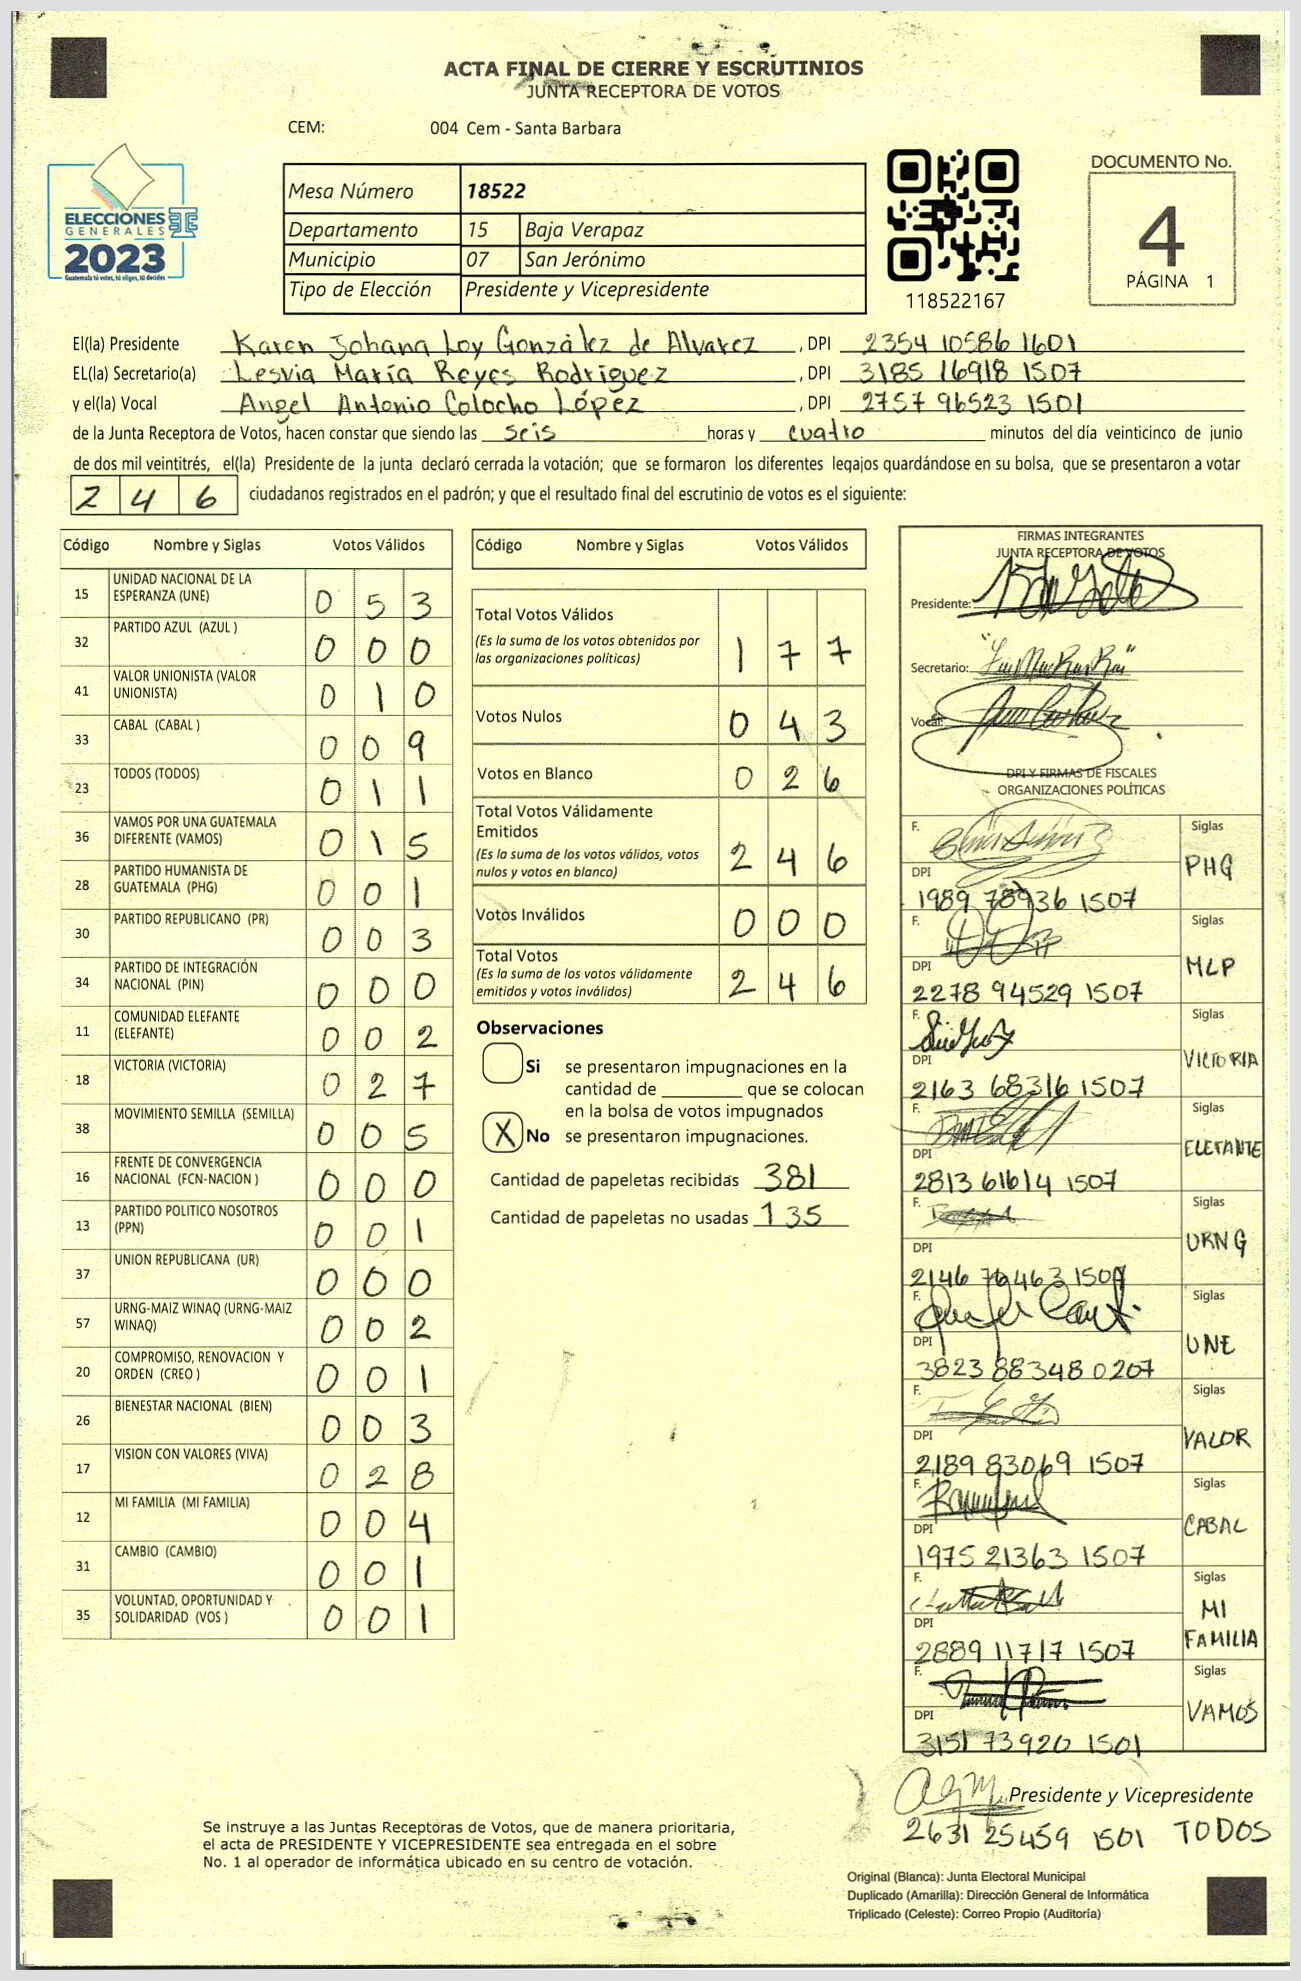 ACTA FINAL DE CIERRE Y ESCRUTINIOS
JUNTA RECEPTORA DE VOTOS
CEM: 004 Cem - Santa Barbara
ELECCIONES
GENERALES
2023
Guatemala tú votas, tú eliges, tú decides
Mesa Número 18522
Departamento 15 Baja Verapaz
Municipio 07 San Jerónimo
Tipo de Elección Presidente y Vicepresidente
118522167
DOCUMENTO No.
4
PÁGINA 1
El(la) Presidente Karen Johana Loy González de Alvarez , DPI 2354 10586 1601
EL(la) Secretario(a) Lesvia María Reyes Rodriguez , DPI 3185 16918 1507
y el(la) Vocal Angel Antonio Colocho López , DPI 2757 96523 1501
de la Junta Receptora de Votos, hacen constar que siendo las seis horas y cuatro minutos del día veinticinco de junio
de dos mil veintitrés, el(la) Presidente de la junta declaró cerrada la votación; que se formaron los diferentes legajos guardándose en su bolsa, que se presentaron a votar
246 ciudadanos registrados en el padrón; y que el resultado final del escrutinio de votos es el siguiente:
Código Nombre y Siglas Votos Válidos
15 UNIDAD NACIONAL DE LA ESPERANZA (UNE) 053
32 PARTIDO AZUL (AZUL ) 000
41 VALOR UNIONISTA (VALOR UNIONISTA) 010
33 CABAL (CABAL ) 009
23 TODOS (TODOS) 011
36 VAMOS POR UNA GUATEMALA DIFERENTE (VAMOS) 015
28 PARTIDO HUMANISTA DE GUATEMALA (PHG) 001
30 PARTIDO REPUBLICANO (PR) 003
34 PARTIDO DE INTEGRACIÓN NACIONAL (PIN) 000
11 COMUNIDAD ELEFANTE (ELEFANTE) 002
18 VICTORIA (VICTORIA) 027
38 MOVIMIENTO SEMILLA (SEMILLA) 005
16 FRENTE DE CONVERGENCIA NACIONAL (FCN-NACION ) 000
13 PARTIDO POLITICO NOSOTROS (PPN) 001
37 UNION REPUBLICANA (UR) 000
57 URNG-MAIZ WINAQ (URNG-MAIZ WINAQ) 002
20 COMPROMISO, RENOVACION Y ORDEN (CREO ) 001
26 BIENESTAR NACIONAL (BIEN) 003
17 VISION CON VALORES (VIVA) 028
12 MI FAMILIA (MI FAMILIA) 004
31 CAMBIO (CAMBIO) 001
35 VOLUNTAD, OPORTUNIDAD Y SOLIDARIDAD (VOS ) 001
Código Nombre y Siglas Votos Válidos
Total Votos Válidos 177
(Es la suma de los votos obtenidos por
las organizaciones políticas)
Votos Nulos 043
Votos en Blanco 026
Total Votos Válidamente
Emitidos 246
(Es la suma de los votos válidos, votos
nulos y votos en blanco)
Votos Inválidos 000
Total Votos 246
(Es la suma de los votos válidamente
emitidos y votos inválidos)
Observaciones
Si se presentaron impugnaciones en la
cantidad de ________ que se colocan
en la bolsa de votos impugnados
X No se presentaron impugnaciones.
Cantidad de papeletas recibidas 381
Cantidad de papeletas no usadas 135
FIRMAS INTEGRANTES
JUNTA RECEPTORA DE VOTOS
Presidente:
Secretario:
Vocal:
DPI Y FIRMAS DE FISCALES
ORGANIZACIONES POLÍTICAS
F. Siglas
DPI PHG
1989 78936 1507
F. Siglas
DPI MLP
2278 94529 1507
F. Siglas
DPI VICTORIA
2163 68316 1507
F. Siglas
DPI ELEFANTE
2813 61614 1507
F. Siglas
DPI URNG
2146 76463 1507
F. Siglas
DPI UNE
3823 88348 0207
F. Siglas
DPI VALOR
2189 83069 1507
F. Siglas
DPI CABAL
1975 21363 1507
F. Siglas
DPI MI FAMILIA
2889 11717 1507
F. Siglas
DPI VAMOS
3151 73920 1501
Presidente y Vicepresidente
2631 25459 1501 TODOS
Se instruye a las Juntas Receptoras de Votos, que de manera prioritaria,
el acta de PRESIDENTE Y VICEPRESIDENTE sea entregada en el sobre
No. 1 al operador de informática ubicado en su centro de votación.
Original (Blanca): Junta Electoral Municipal
Duplicado (Amarilla): Dirección General de Informática
Triplicado (Celeste): Correo Propio (Auditoría)